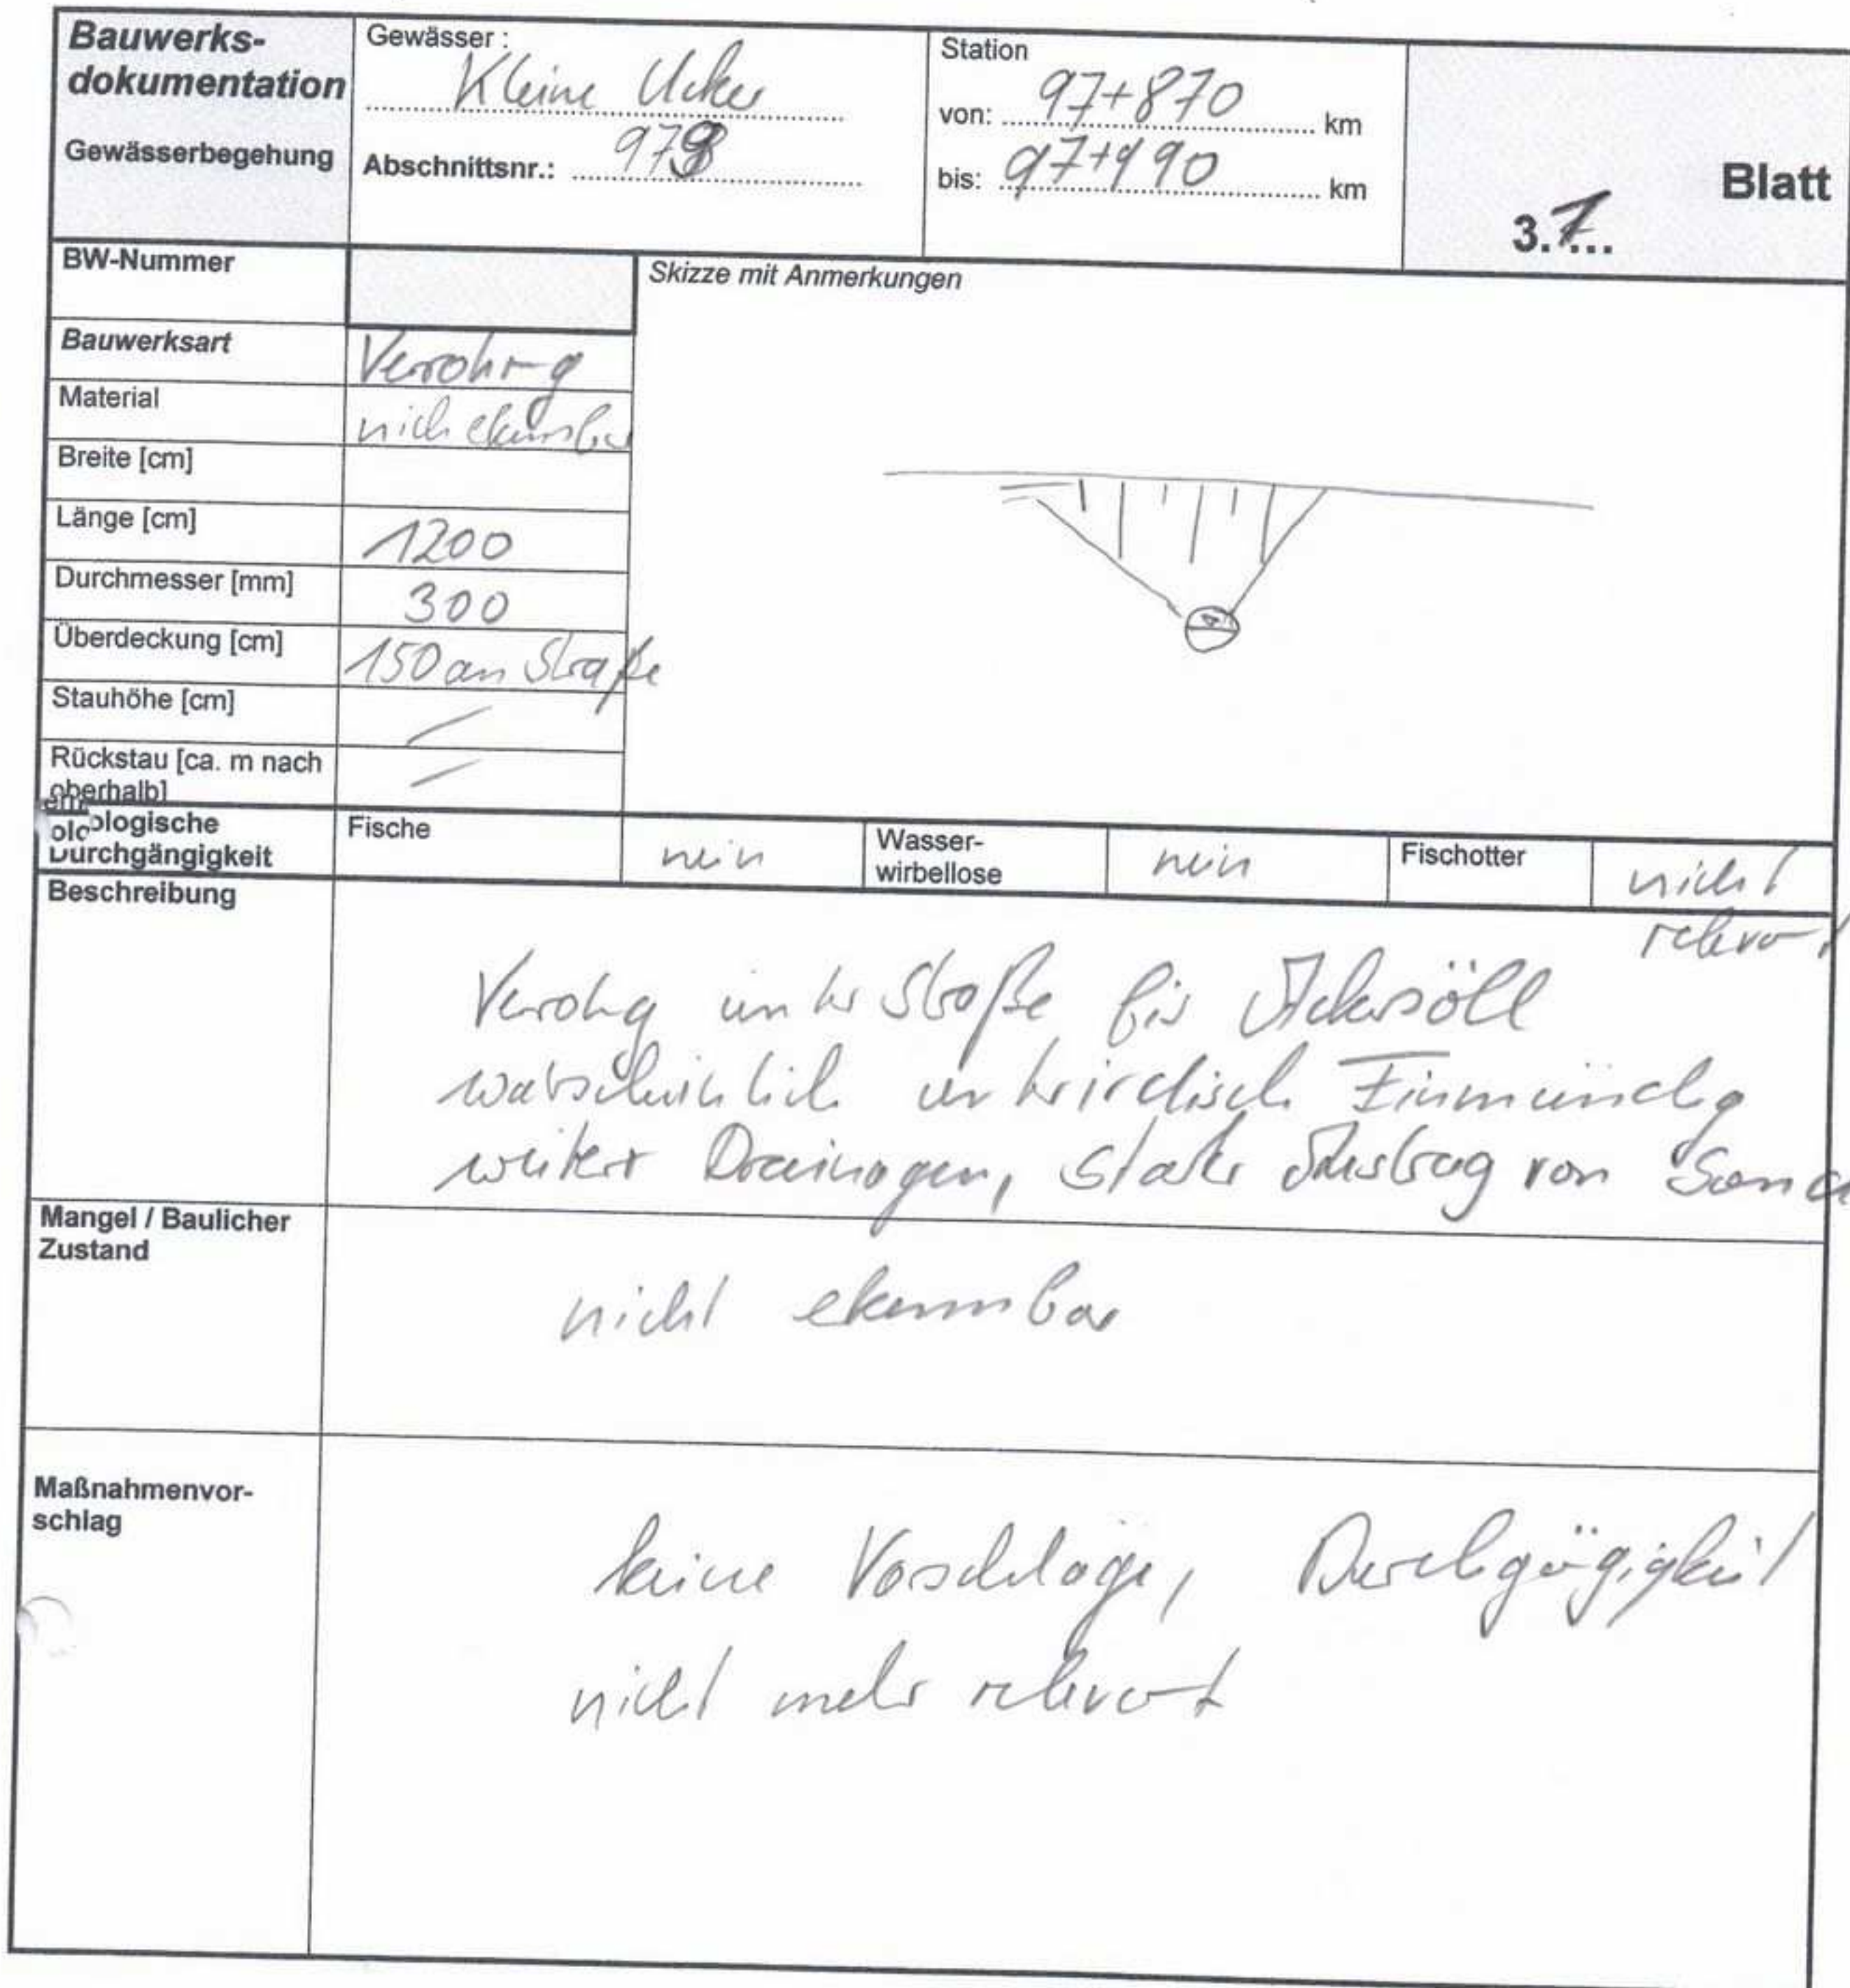 Bauwerks-
dokumentation
Gewässerbegehung
Gewässer :
Kleine Ucker
Abschnittsnr.:
Station
von: 97+870 km
bis: 97+990 km
Blatt
3.7...
BW-Nummer
Skizze mit Anmerkungen
Bauwerksart Verrohrg
Material nich ekennbar
Breite [cm]
Länge [cm] 1200
Durchmesser [mm] 300
Überdeckung [cm] 150 an Straße
Stauhöhe [cm] /
Rückstau [ca. m nach
oberhalb] /
ologische
Durchgängigkeit
Fische nein
Wasser-
wirbellose nein
Fischotter nicht
relevant
Beschreibung
Verohg unter Straße bis Ackersöll
warscheinlich unterirdisch Einmündg
weiterer Drainagen, starker Austrag von Sand
Mangel / Baulicher
Zustand
nicht ekennbar
Maßnahmenvor-
schlag
keine Vorschläge, Durchgägigkeit
nicht mehr relevant